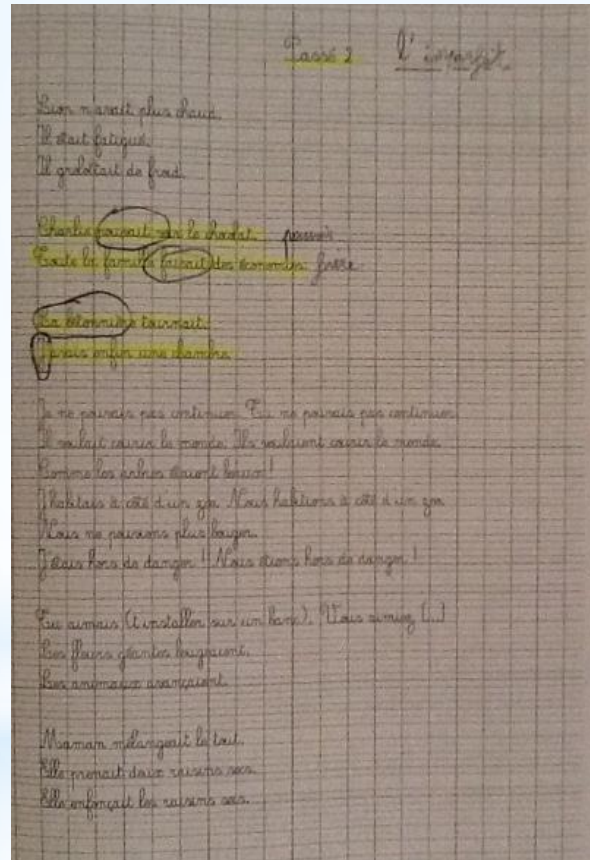 Passé 2 l'imparfait
Lion n'avait plus chaud.
Il était fatigué.
Il grelottait de froid.
Charlie pouvait voir le chocolat. pouvoir
Toute la famille faisait des économies. faire
La bétonnière tournait.
J'avais enfin une chambre.
Je ne pouvais pas continuer. Tu ne pouvais pas continuer.
Il voulait courir le monde. Ils voulaient courir le monde.
Comme les arbres étaient beaux !
J'habitais à côté d'un zoo. Nous habitions à côté d'un zoo.
Nous ne pouvions plus bouger.
J'étais hors de danger ! Nous étions hors de danger !
Tu aimais (t'installer sur un banc). Vous aimiez (...)
Les fleurs géantes bougeaient.
Les animaux avançaient.
Maman mélangeait le tout.
Elle prenait deux raisins secs.
Elle enfonçait les raisins secs.